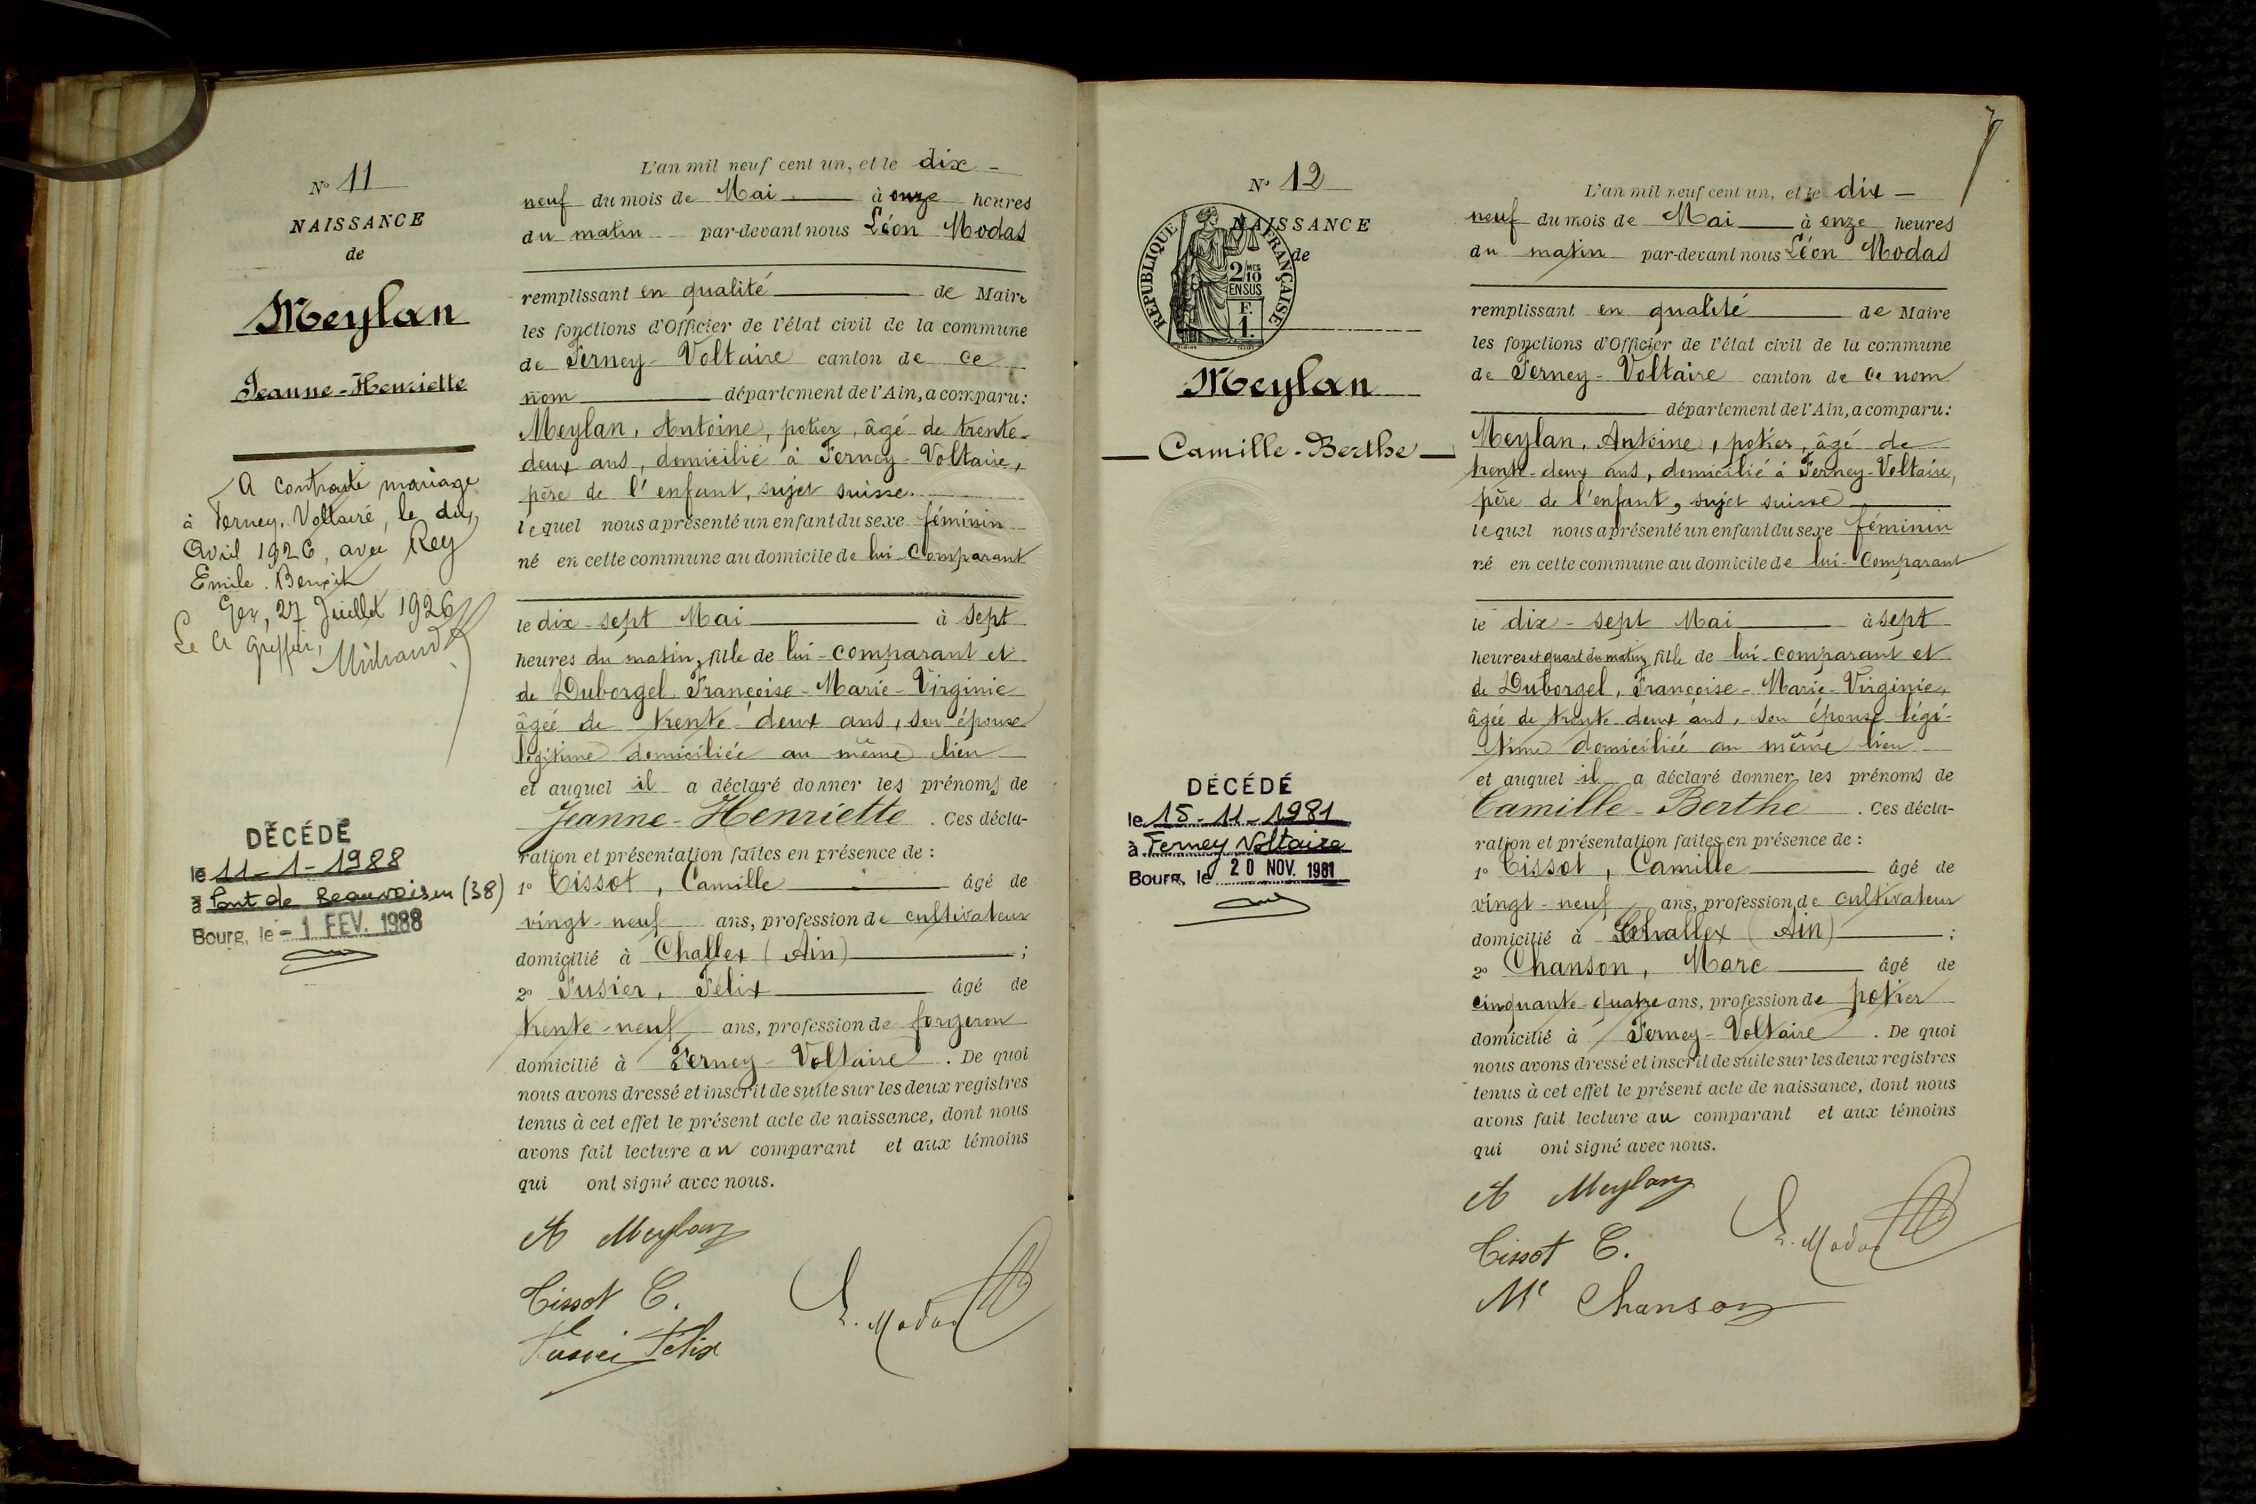 N° 11
NAISSANCE
de
Meylan
Jeanne-Henriette
A contracté mariage
à Ferney-Voltaire, le dix
Avril 1926, avec Rey
Emile Benoit
Gex, 27 Juillet 1926
Le Cis greffier,
DÉCÉDÉ
le 11-1-1988
à Pont de Beauvoisin (38)
Bourg, le -1 FEV. 1988
L'an mil neuf cent un, et le dix-
neuf du mois de Mai à onze heures
du matin par-devant nous Léon Modas
remplissant en qualité de Maire
les fonctions d'Officier de l'état civil de la commune
de Ferney-Voltaire canton de ce
nom département de l'Ain, a comparu:
Meylan, Antoine, potier, âgé de trente-
deux ans, domicilié à Ferney-Voltaire,
père de l'enfant, sujet suisse.
lequel nous a présenté un enfant du sexe féminin
né en cette commune au domicile de lui-comparant
le dix-sept Mai à sept
heures du matin, fille de lui-comparant et
de Duborgel, Françoise-Marie-Virginie
âgée de trente-deux ans, son épouse
légitime domiciliée au même lieu
et auquel il a déclaré donner les prénoms de
Jeanne-Henriette. Ces décla-
ration et présentation faites en présence de:
1° Tissot, Camille âgé de
vingt-neuf ans, profession de cultivateur
domicilié à Challex (Ain);
2° Fusier, Félix âgé de
trente-neuf ans, profession de forgeron
domicilié à Ferney-Voltaire. De quoi
nous avons dressé et inscrit de suite sur les deux registres
tenus à cet effet le présent acte de naissance, dont nous
avons fait lecture au comparant et aux témoins
qui ont signé avec nous.
A Meylan
Tissot C.
L. Modas
Fusier Félix
7
N° 12
NAISSANCE
de
RÉPUBLIQUE FRANÇAISE
2/10 MES
EN SUS
F.
1.
Meylan
Camille-Berthe
DÉCÉDÉ
le 15-11-1981
à Ferney Voltaire
Bourg, le 20 NOV. 1981
L'an mil neuf cent un, et le dix-
neuf du mois de Mai à onze heures
du matin par-devant nous Léon Modas
remplissant en qualité de Maire
les fonctions d'Officier de l'état civil de la commune
de Ferney-Voltaire canton de ce nom
département de l'Ain, a comparu:
Meylan, Antoine, potier, âgé de
trente-deux ans, domicilié à Ferney-Voltaire,
père de l'enfant, sujet suisse
lequel nous a présenté un enfant du sexe féminin
né en cette commune au domicile de lui-comparant
le dix-sept Mai à sept
heures et quart du matin, fille de lui-comparant et
de Duborgel, Françoise-Marie-Virginie,
âgée de trente-deux ans, son épouse légi-
time domiciliée au même lieu
et auquel il a déclaré donner les prénoms de
Camille-Berthe. Ces décla-
ration et présentation faites en présence de:
1° Tissot, Camille âgé de
vingt-neuf ans, profession de cultivateur
domicilié à Challex (Ain);
2° Chanson, Marc âgé de
cinquante-quatre ans, profession de potier
domicilié à Ferney-Voltaire. De quoi
nous avons dressé et inscrit de suite sur les deux registres
tenus à cet effet le présent acte de naissance, dont nous
avons fait lecture au comparant et aux témoins
qui ont signé avec nous.
A Meylan
L. Modas
Tissot C.
Mc Chanson